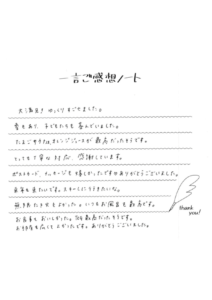 一言ご感想ノート
大満足! ゆっくりすごせました。
雪もあり、子どもたちも喜んでいました。
たまごサラダ、オレンジジュースが最高だったそうです。
とっても丁寧な対応、感謝しています。
ポストカード、メッセージも嬉しかったですありがとうございました。
来年も来たいです。スキーしに行きたいな。
いつもお風呂も最高です。
お食事もおいしかった。最高だったそうです。
お部屋も広くてよかったです。ありがとうございました。
thank you!